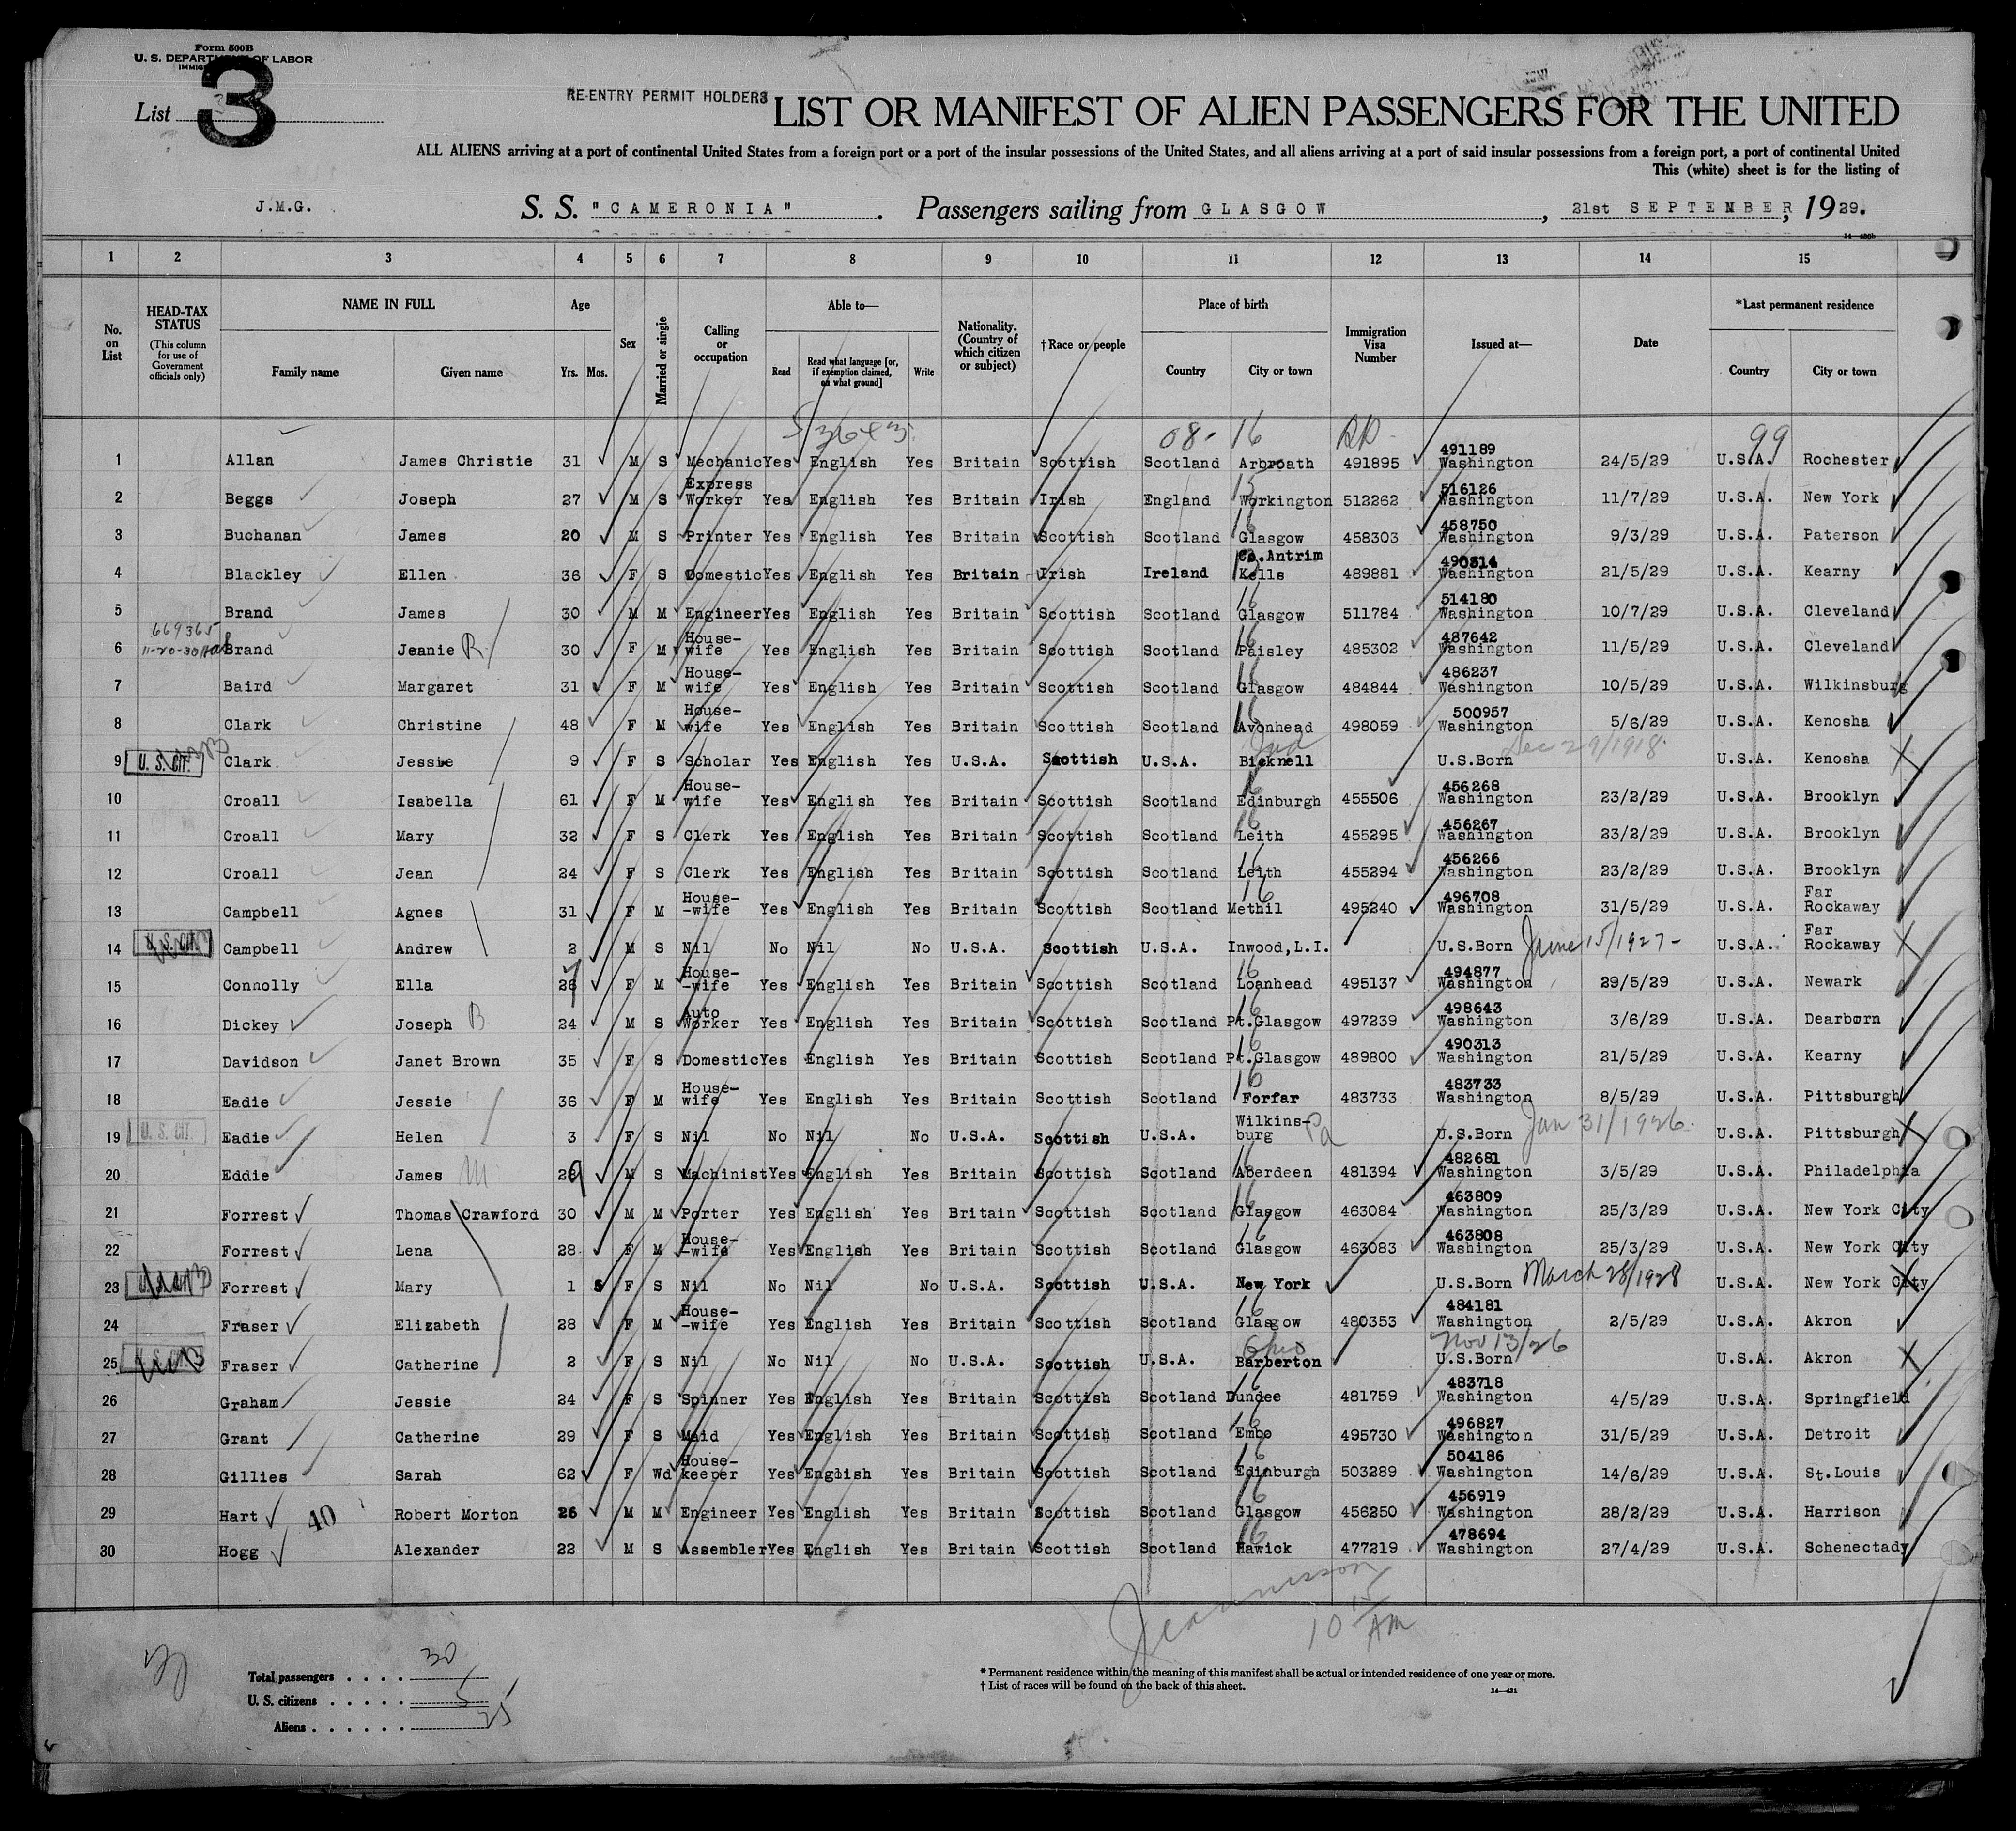 Form 500B
U. S. DEPARTMENT OF LABOR
List 3
RE-ENTRY PERMIT HOLDERS
LIST OR MANIFEST OF ALIEN PASSENGERS FOR THE UNITED
ALL ALIENS arriving at a port of continental United States from a foreign port or a port of the insular possessions of the United States, and all aliens arriving at a port of said insular possessions from a foreign port, a port of continental United
This (white) sheet is for the listing of
J.M.G. S. S. "CAMERONIA". Passengers sailing from GLASGOW, 21st SEPTEMBER, 1929.
14—430b
1 2 3 4 5 6 7 8 9 10 11 12 13 14 15
No. on List
HEAD-TAX STATUS (This column for use of Government officials only)
NAME IN FULL Family name Given name
Age Yrs. Mos.
Sex
Married or single
Calling or occupation
Able to— Read Read what language [or, if exemption claimed, on what ground] Write
Nationality. (Country of which citizen or subject)
†Race or people
Place of birth Country City or town
Immigration Visa Number
Issued at—
Date
*Last permanent residence Country City or town
08- 16 99
1 Allan James Christie 31 M S Mechanic Yes English Yes Britain Scottish Scotland Arbroath 491895 491189 Washington 24/5/29 U.S.A. Rochester
2 Beggs Joseph 27 M S Express Worker Yes English Yes Britain Irish England Workington 512262 516126 Washington 11/7/29 U.S.A. New York
3 Buchanan James 20 M S Printer Yes English Yes Britain Scottish Scotland Glasgow 458303 458750 Washington 9/3/29 U.S.A. Paterson
4 Blackley Ellen 36 F S Domestic Yes English Yes Britain Irish Ireland Co.Antrim Kells 489881 490314 Washington 21/5/29 U.S.A. Kearny
5 Brand James 30 M M Engineer Yes English Yes Britain Scottish Scotland Glasgow 511784 514180 Washington 10/7/29 U.S.A. Cleveland
6 669365 11-20-30 Brand Jeanie R. 30 F M House-wife Yes English Yes Britain Scottish Scotland Paisley 485302 487642 Washington 11/5/29 U.S.A. Cleveland
7 Baird Margaret 31 F M House-wife Yes English Yes Britain Scottish Scotland Glasgow 484844 486237 Washington 10/5/29 U.S.A. Wilkinsburg
8 Clark Christine 48 F M House-wife Yes English Yes Britain Scottish Scotland Avonhead 498059 500957 Washington 5/6/29 U.S.A. Kenosha
9 U. S. CIT. Clark Jessie 9 F S Scholar Yes English Yes U.S.A. Scottish U.S.A. Ind Bicknell U.S.Born Dec 29/1918 U.S.A. Kenosha
10 Croall Isabella 61 F M House-wife Yes English Yes Britain Scottish Scotland Edinburgh 455506 456268 Washington 23/2/29 U.S.A. Brooklyn
11 Croall Mary 32 F S Clerk Yes English Yes Britain Scottish Scotland Leith 455295 456267 Washington 23/2/29 U.S.A. Brooklyn
12 Croall Jean 24 F S Clerk Yes English Yes Britain Scottish Scotland Leith 455294 456266 Washington 23/2/29 U.S.A. Brooklyn
13 Campbell Agnes 31 F M House--wife Yes English Yes Britain Scottish Scotland Methil 495240 496708 Washington 31/5/29 U.S.A. Far Rockaway
14 U. S. CIT. Campbell Andrew 2 M S Nil No Nil No U.S.A. Scottish U.S.A. Inwood,L.I. U.S.Born June 15/1927- U.S.A. Far Rockaway
15 Connolly Ella 26 7 F M House--wife Yes English Yes Britain Scottish Scotland Loanhead 495137 494877 Washington 29/5/29 U.S.A. Newark
16 Dickey Joseph B 24 M S Auto Worker Yes English Yes Britain Scottish Scotland Pt.Glasgow 497239 498643 Washington 3/6/29 U.S.A. Dearborn
17 Davidson Janet Brown 35 F S Domestic Yes English Yes Britain Scottish Scotland Pt.Glasgow 489800 490313 Washington 21/5/29 U.S.A. Kearny
18 Eadie Jessie 36 F M House-wife Yes English Yes Britain Scottish Scotland Forfar 483733 483733 Washington 8/5/29 U.S.A. Pittsburgh
19 U. S. CIT. Eadie Helen 3 F S Nil No Nil No U.S.A. Scottish U.S.A. Wilkins-burg Pa U.S.Born Jan 31/1926. U.S.A. Pittsburgh
20 Eddie James M 28 9 M S Machinist Yes English Yes Britain Scottish Scotland Aberdeen 481394 482681 Washington 3/5/29 U.S.A. Philadelphia
21 Forrest Thomas Crawford 30 M M Porter Yes English Yes Britain Scottish Scotland Glasgow 463084 463809 Washington 25/3/29 U.S.A. New York City
22 Forrest Lena 28 F M House--wife Yes English Yes Britain Scottish Scotland Glasgow 463083 463808 Washington 25/3/29 U.S.A. New York City
23 Forrest Mary 1 5 F S Nil No Nil No U.S.A. Scottish U.S.A. New York U.S.Born March 28/1928 U.S.A. New York City
24 Fraser Elizabeth 28 F M House--wife Yes English Yes Britain Scottish Scotland Glasgow 480353 484181 Washington 2/5/29 U.S.A. Akron
25 U. S. CIT. Fraser Catherine 2 F S Nil No Nil No U.S.A. Scottish U.S.A. Ohio Barberton U.S.Born Nov 13/26 U.S.A. Akron
26 Graham Jessie 24 F S Spinner Yes English Yes Britain Scottish Scotland Dundee 481759 483718 Washington 4/5/29 U.S.A. Springfield
27 Grant Catherine 29 F S Maid Yes English Yes Britain Scottish Scotland Embo 495730 496827 Washington 31/5/29 U.S.A. Detroit
28 Gillies Sarah 62 F Wd House-keeper Yes English Yes Britain Scottish Scotland Edinburgh 503289 504186 Washington 14/6/29 U.S.A. St.Louis
29 Hart 40 Robert Morton 26 M M Engineer Yes English Yes Britain Scottish Scotland Glasgow 456250 456919 Washington 28/2/29 U.S.A. Harrison
30 Hogg Alexander 22 M S Assembler Yes English Yes Britain Scottish Scotland Hawick 477219 478694 Washington 27/4/29 U.S.A. Schenectady
10 15 AM
Total passengers . . . . 30
U. S. citizens . . . . . 5
Aliens . . . . . . 25
* Permanent residence within the meaning of this manifest shall be actual or intended residence of one year or more.
† List of races will be found on the back of this sheet.
14—421